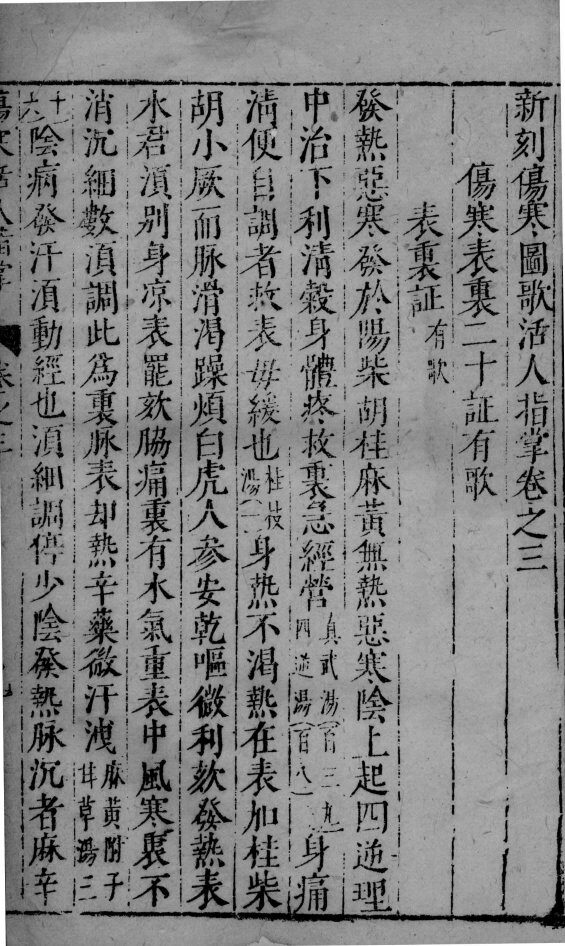 新刻傷寒圖歌活人指掌卷之三
傷寒表裏二十証有歌
表裏証 有歌
發熱惡寒發於陽柴胡桂麻黃無熱惡寒陰上起四逆理
中治下利清穀身體疼救裏急經營 真武湯百三九 四逆湯百八 身痛
清便自調者救表毋緩也 桂枝湯一 身熱不渴熱在表加桂柴
胡小厥而脉滑渴躁煩白虎人參安乾嘔微利欬發熱表
水君湏别身凉表罷欬脇痛裏有水氣重表中風寒裏不
消沉細數湏調此爲裏脉表却熱辛藥微汗洩 麻黃附子甘草湯三
十六 陰病發汗湏動經也湏細調停少陰發熱脉沉者麻辛
傷寒活人指掌 卷之三